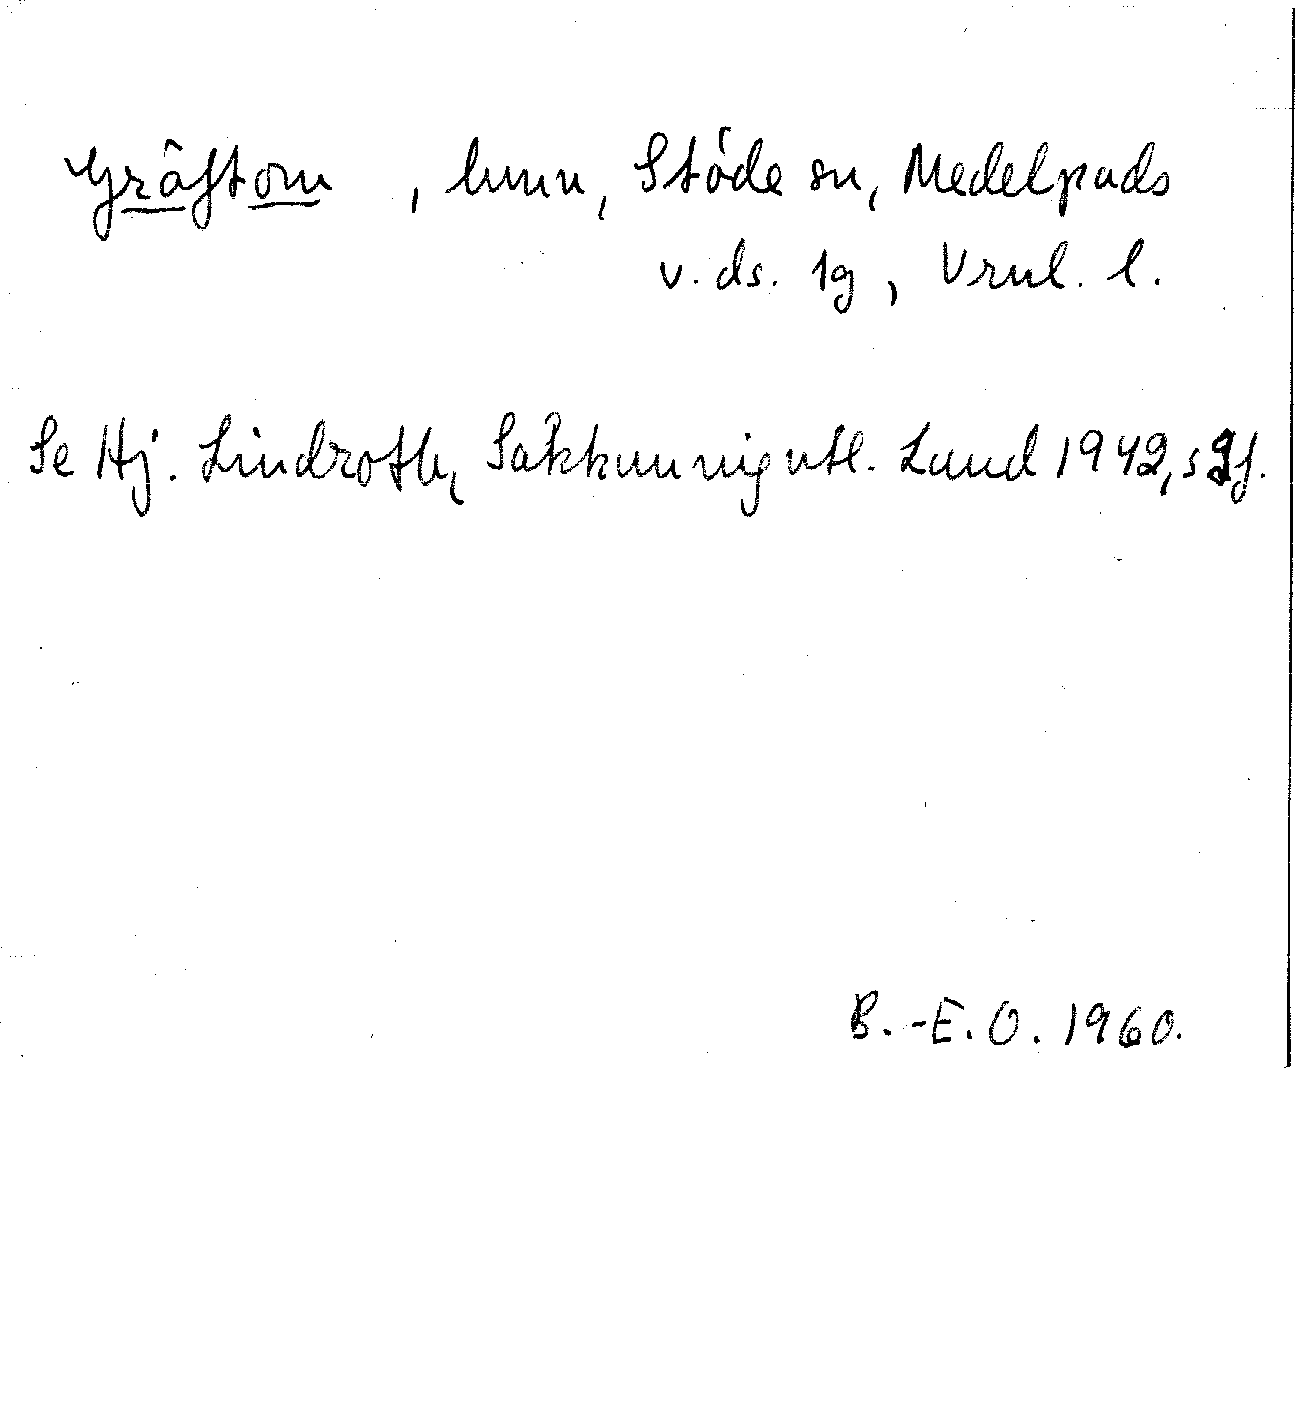 Gräftom, hmn, Stöde sn, Medelpads
v. ds. lg, Vrnl. l.
Se Hj. Lindroth, Sakkunnigutl. Lund 1942, s 9f.
B.-E.O. 1960.